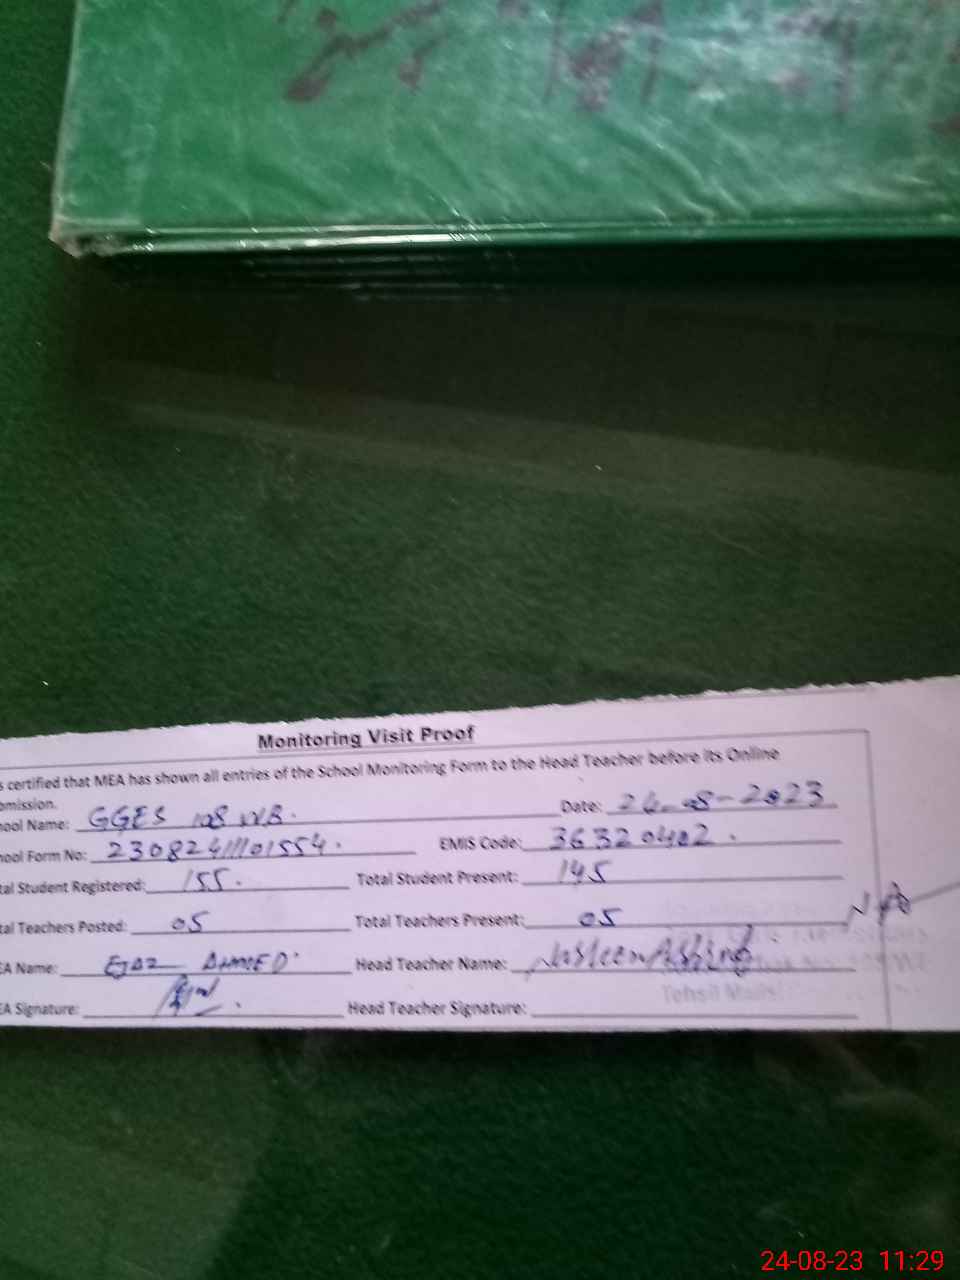 Monitoring Visit Proof
s certified that MEA has shown all entries of the School Monitoring Form to the Head Teacher before its Online
omission.
ool Name: GGES 108 WB. Date: 24-08-2023
ool Form No: 23082411101554. EMIS Code: 36320402.
tal Student Registered: 155. Total Student Present: 145
tal Teachers Posted: 05 Total Teachers Present: 05
EA Name: EJAZ AHMED Head Teacher Name:
EA Signature: Head Teacher Signature:
Tehsil Mailsi
24-08-23 11:29